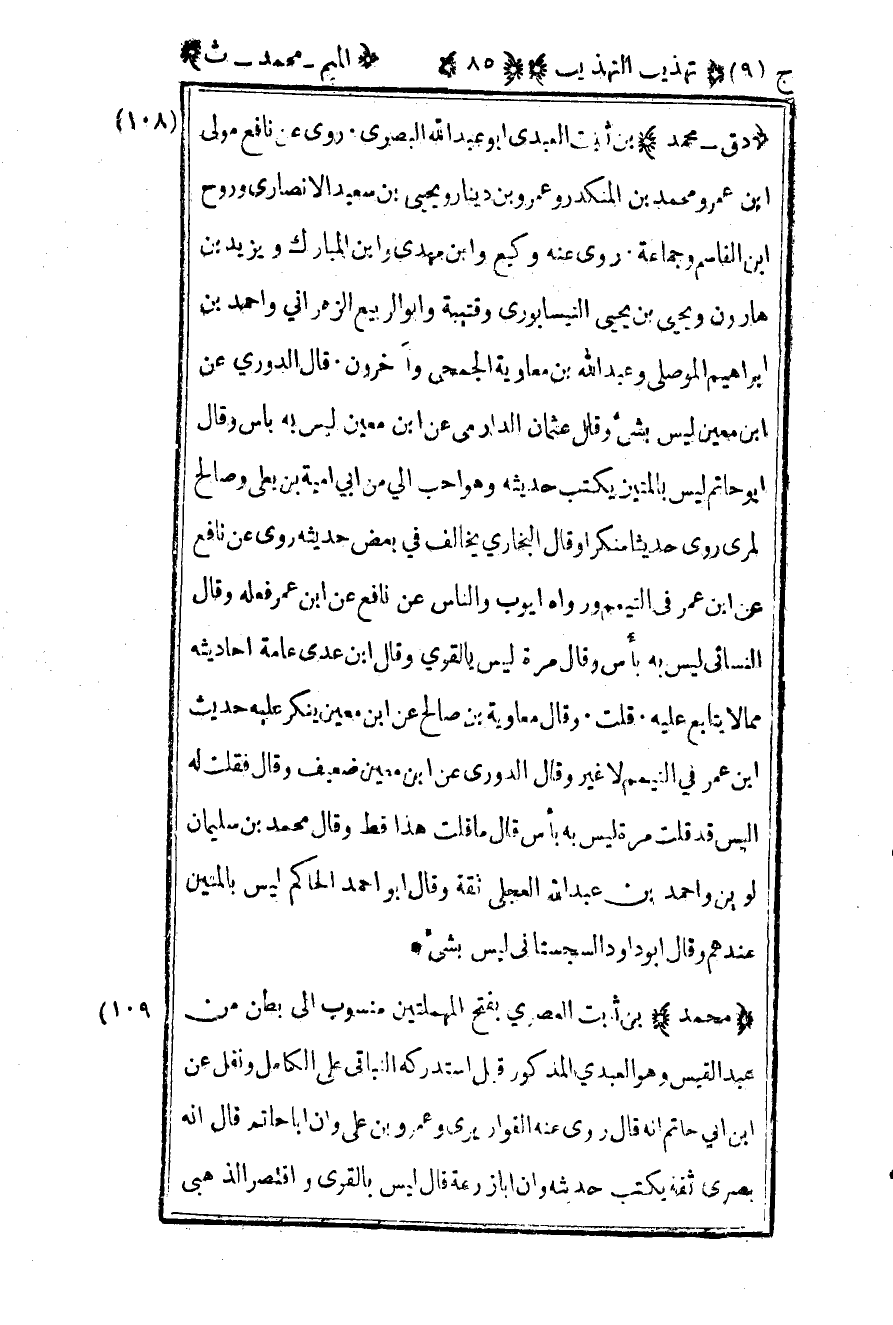 ج (٩) ﴿ تهذيب التهذيب ﴾ ﴿ ٨٥ ﴾ ﴿ الميم - محمد - ث ﴾
(١٠٨) ﴿ دق - محمد ﴾ بن ثابت العبدى ابو عبد الله البصرى · روى عن نافع مولى
ابن عمر ومحمد بن المنكدر وعمرو بن دينار ويحيى بن سعيد الانصارى وروح
ابن القاسم وجماعة · روى عنه وكيع وابن مهدى وابن المبارك ويزيد بن
هارون ويحيى بن يحيى النيسابورى وقتيبة وابو الربيع الزهراني واحمد بن
ابراهيم الموصلى وعبد الله بن معاوية الجمحى وآخرون · قال الدوري عن
ابن معين ليس بشئ وقال عثمان الدارمى عن ابن معين ليس به باس وقال
ابو حاتم ليس بالمتين يكتب حديثه وهو احب الي من ابي امية بن يعلى وصالح
لمرى روى حديثا منكرا وقال البخاري يخالف في بعض حديثه روى عن نافع
عن ابن عمر فى التيمم ورواه ايوب والناس عن نافع عن ابن عمر فعله وقال
النسائى ليس به بأس وقال مرة ليس بالقوي وقال ابن عدى عامة احاديثه
ممالا يتابع عليه · قلت · وقال معاوية بن صالح عن ابن معين ينكر عليه حديث
ابن عمر في التيمم لا غير وقال الدورى عن ابن معين ضعيف وقال فقلت له
اليس قد قلت مرة ليس به بأس قال ما قلت هذا قط وقال محمد بن سليمان
لوين واحمد بن عبد الله العجلى ثقة وقال ابو احمد الحاكم ليس بالمتين
عندهم وقال ابو داود السجستانى ليس بشئ •
(١٠٩ ﴿ محمد ﴾ بن ثابت العصري بفتح المهملتين منسوب الى بطن من
عبد القيس وهو العبدي المذكور قبل استدركه النباتى على الكامل ونقل عن
ابن ابي حاتم انه قال روى عنه القواريرى وعمرو بن على وان ابا حاتم قال انه
بصرى ثقة يكتب حديثه وان ابا زرعة قال ليس بالقوى و اقتصر الذهبى